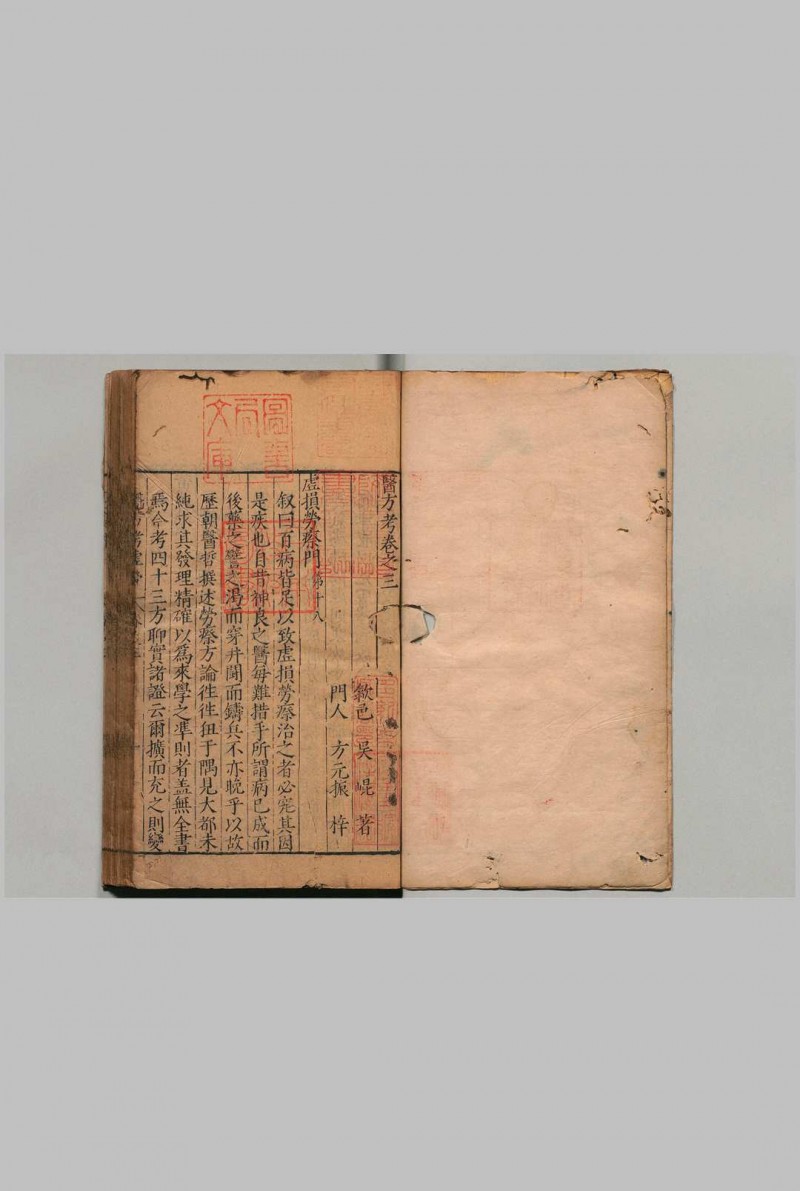 醫方考卷之三
歙邑 吳 崐 著
門人 方元振 梓
虛損勞瘵門第十八
叙曰百病皆足以致虛損勞瘵治之者必究其因
是疾也自昔神良之醫每難措手所謂病已成而
後藥之譬之渴而穿井鬪而鑄兵不亦晩乎以故
歷朝醫哲撰述勞瘵方論徃徃狃于隅見大都未
純求其發理精確以爲來學之準則者盖無全書
焉今考四十三方聊實諸證云爾擴而充之則變